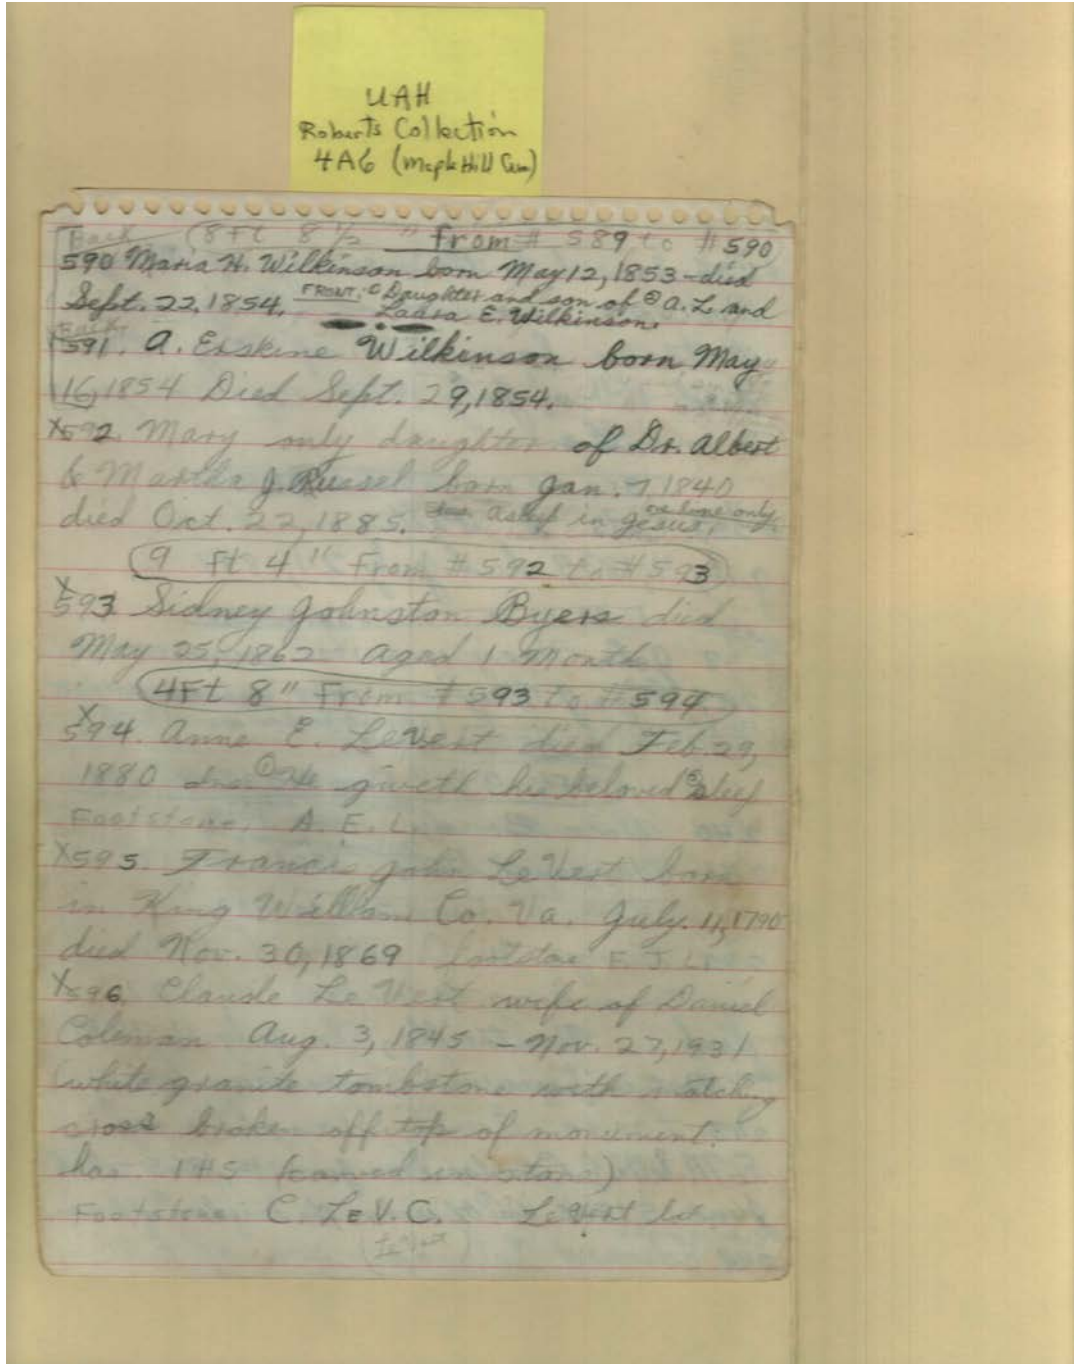 UAH
Roberts Collection
4A6 (Maple Hill Cem)
Back (8Ft 8 1/2 " From # 589 to # 590)
590 Maria H. Wilkinson born May 12, 1853 - died
Sept. 22, 1854. FRONT: Daughter and son of A. L. and
Laura E. Wilkinson.
Back
591. A. Erskine Wilkinson born May
16, 1854 Died Sept. 29, 1854.
X592. Mary only daughter of Dr. Albert
& Martha J. Russel born Jan. 7, 1840
died Oct. 22, 1885. asleep in Jesus. one line only
(9 ft 4 " From # 592 to # 593)
X
593 Sidney Johnston Byers died
May 25, 1862 aged 1 Month
(4Ft 8 " From # 593 to # 594
X
594. Anne E. LeVert died Feb. 29,
1880 He giveth his beloved sleep
Footstone: A. E. L.
X595. Francis John LeVert born
in King William Co. Va. July. 11, 1790
died Nov. 30, 1869 footstone F. J. L.
X596. Claude Le Vert wife of Daniel
Coleman Aug. 3, 1845 - Nov. 27, 1931
(white granite tombstone with
cross broken off top of monument.
has IHS (carved in stone)
Footstone: C. LE V. C. LeVert lot